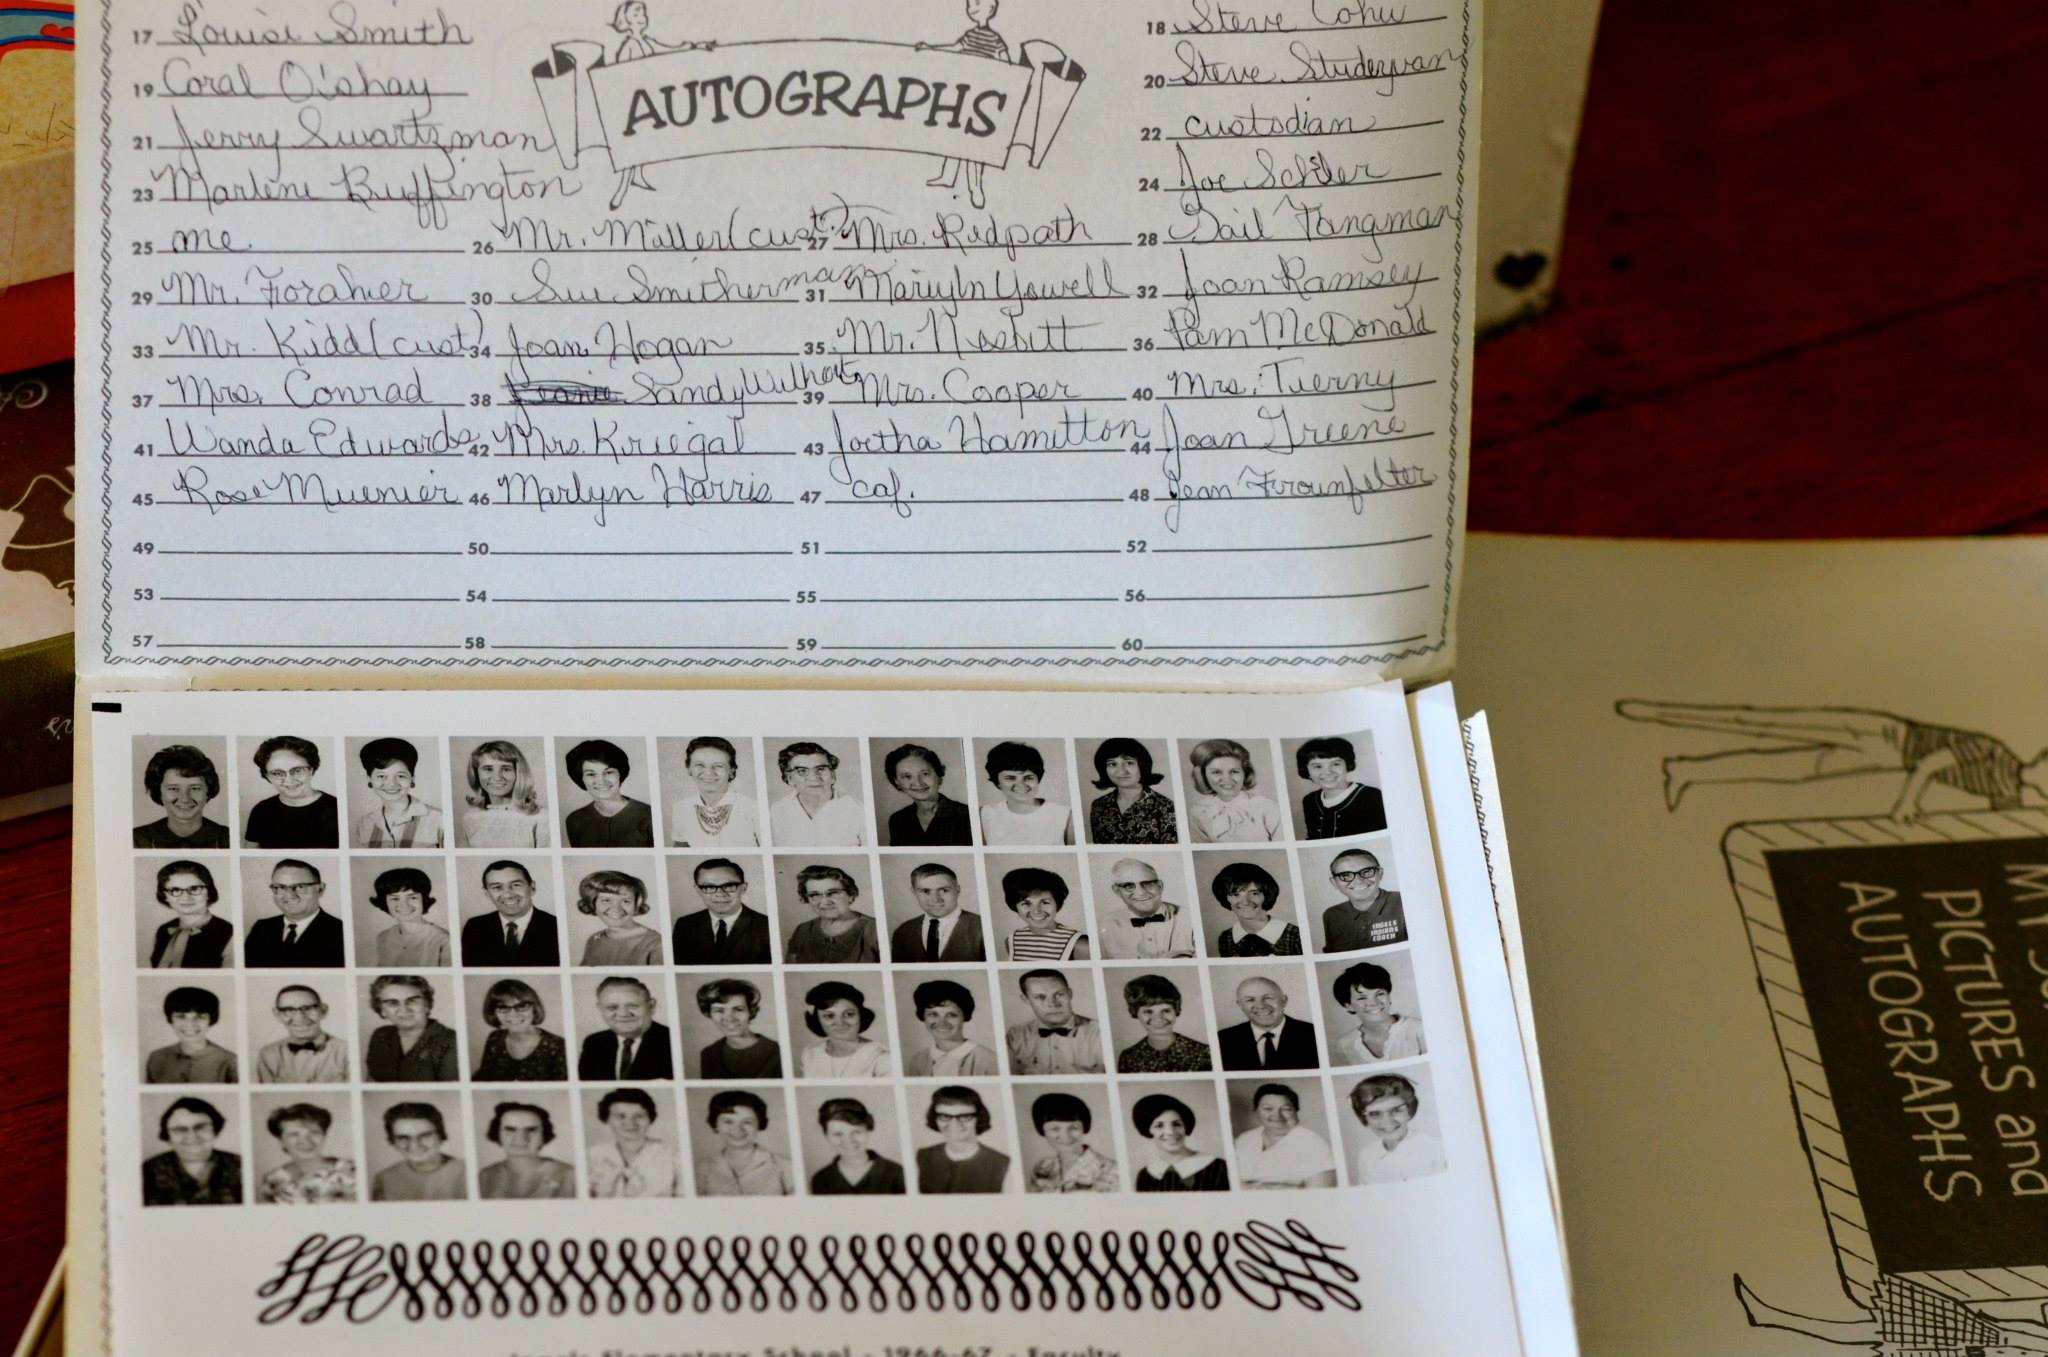 17 Louise Smith 18 Steve Cohu
AUTOGRAPHS
19 Coral O'shay 20 Steve Studeyvan
21 Jerry Swartzman 22 custodian
23 Marlene Buffington 24 Joe Schler
25 me 26 Mr. Miller (cust.) 27 Mrs. Redpath 28 Gail Fangman
29 Mr. Forahier 30 Sue Smitherman 31 Marilyn Yowell 32 Joan Ramsey
33 Mr. Kidd (cust.) 34 Joan Hogan 35 Mr. Nesbitt 36 Pam McDonald
37 Mrs. Conrad 38 Sandy Wilhoit 39 Mrs. Cooper 40 Mrs. Tierny
41 Wanda Edwards 42 Mrs. Kriegal 43 Jortha Hamilton 44 Joan Greene
45 Rose Muenier 46 Marlyn Harris 47 caf. 48 Jean Frounfelter
49 50 51 52
53 54 55 56
57 58 59 60
INDIANS
COACH
Elementary School - 1966-67 - Faculty
PICTURES and
AUTOGRAPHS